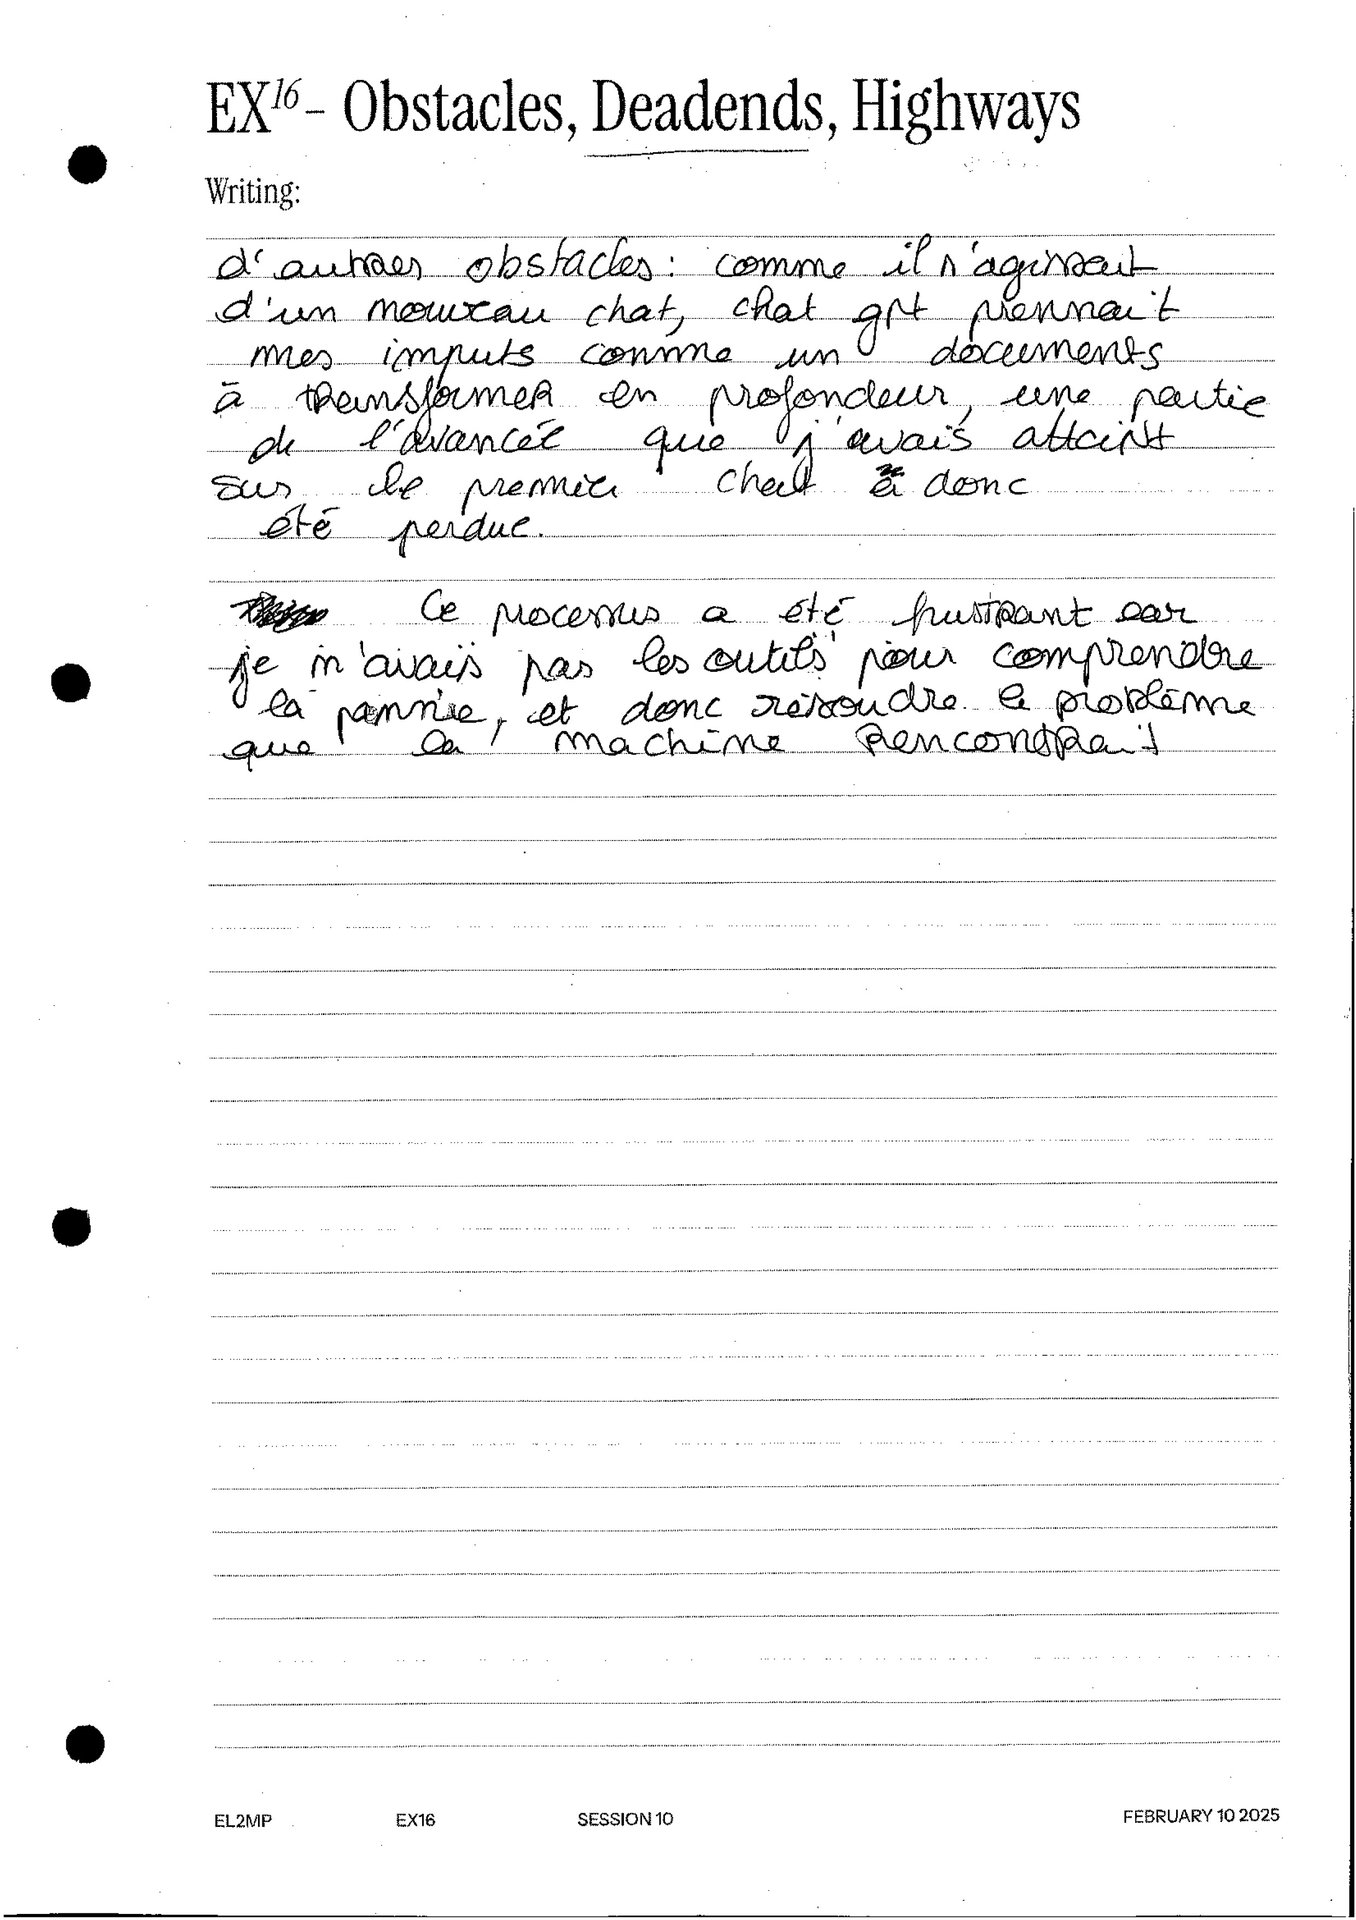 EX16 – Obstacles, Deadends, Highways
Writing:
d'autres obstacles : comme il s'agissait
d'un nouveau chat, chat gpt prennait
mes imputs comme un documents
à transformer en profondeur, une partie
de l'avancée que j'avais atteint
sur le premier chat a donc
été perdue.
Ce processus a été frustrant car
je n'avais pas les outils pour comprendre
la pannie, et donc résoudre le problème
que la machine rencontrait
EL2MP EX16 SESSION 10 FEBRUARY 10 2025